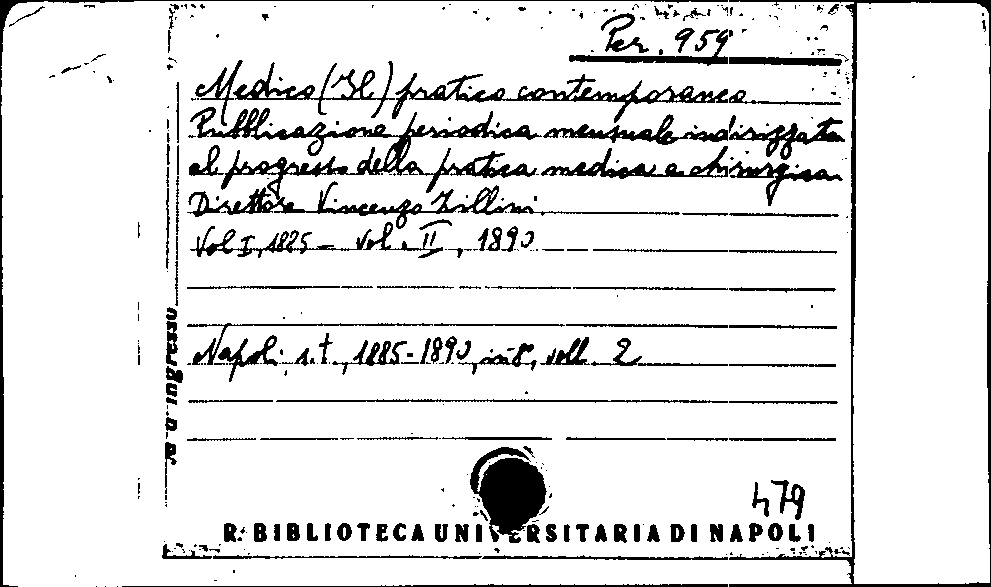 Per. 959
Medico (Il) pratico contemporaneo.
Pubblicazione periodica mensuale indirizzata
al progresso della pratica medica e chirurgica.
Direttore Vincenzo Zillini.
Vol I, 1885 - Vol. II, 1890
Napoli, s.t., 1885-1890, in-8°, voll. 2
N. d'ingresso
479
R. BIBLIOTECA UNIVERSITARIA DI NAPOLI